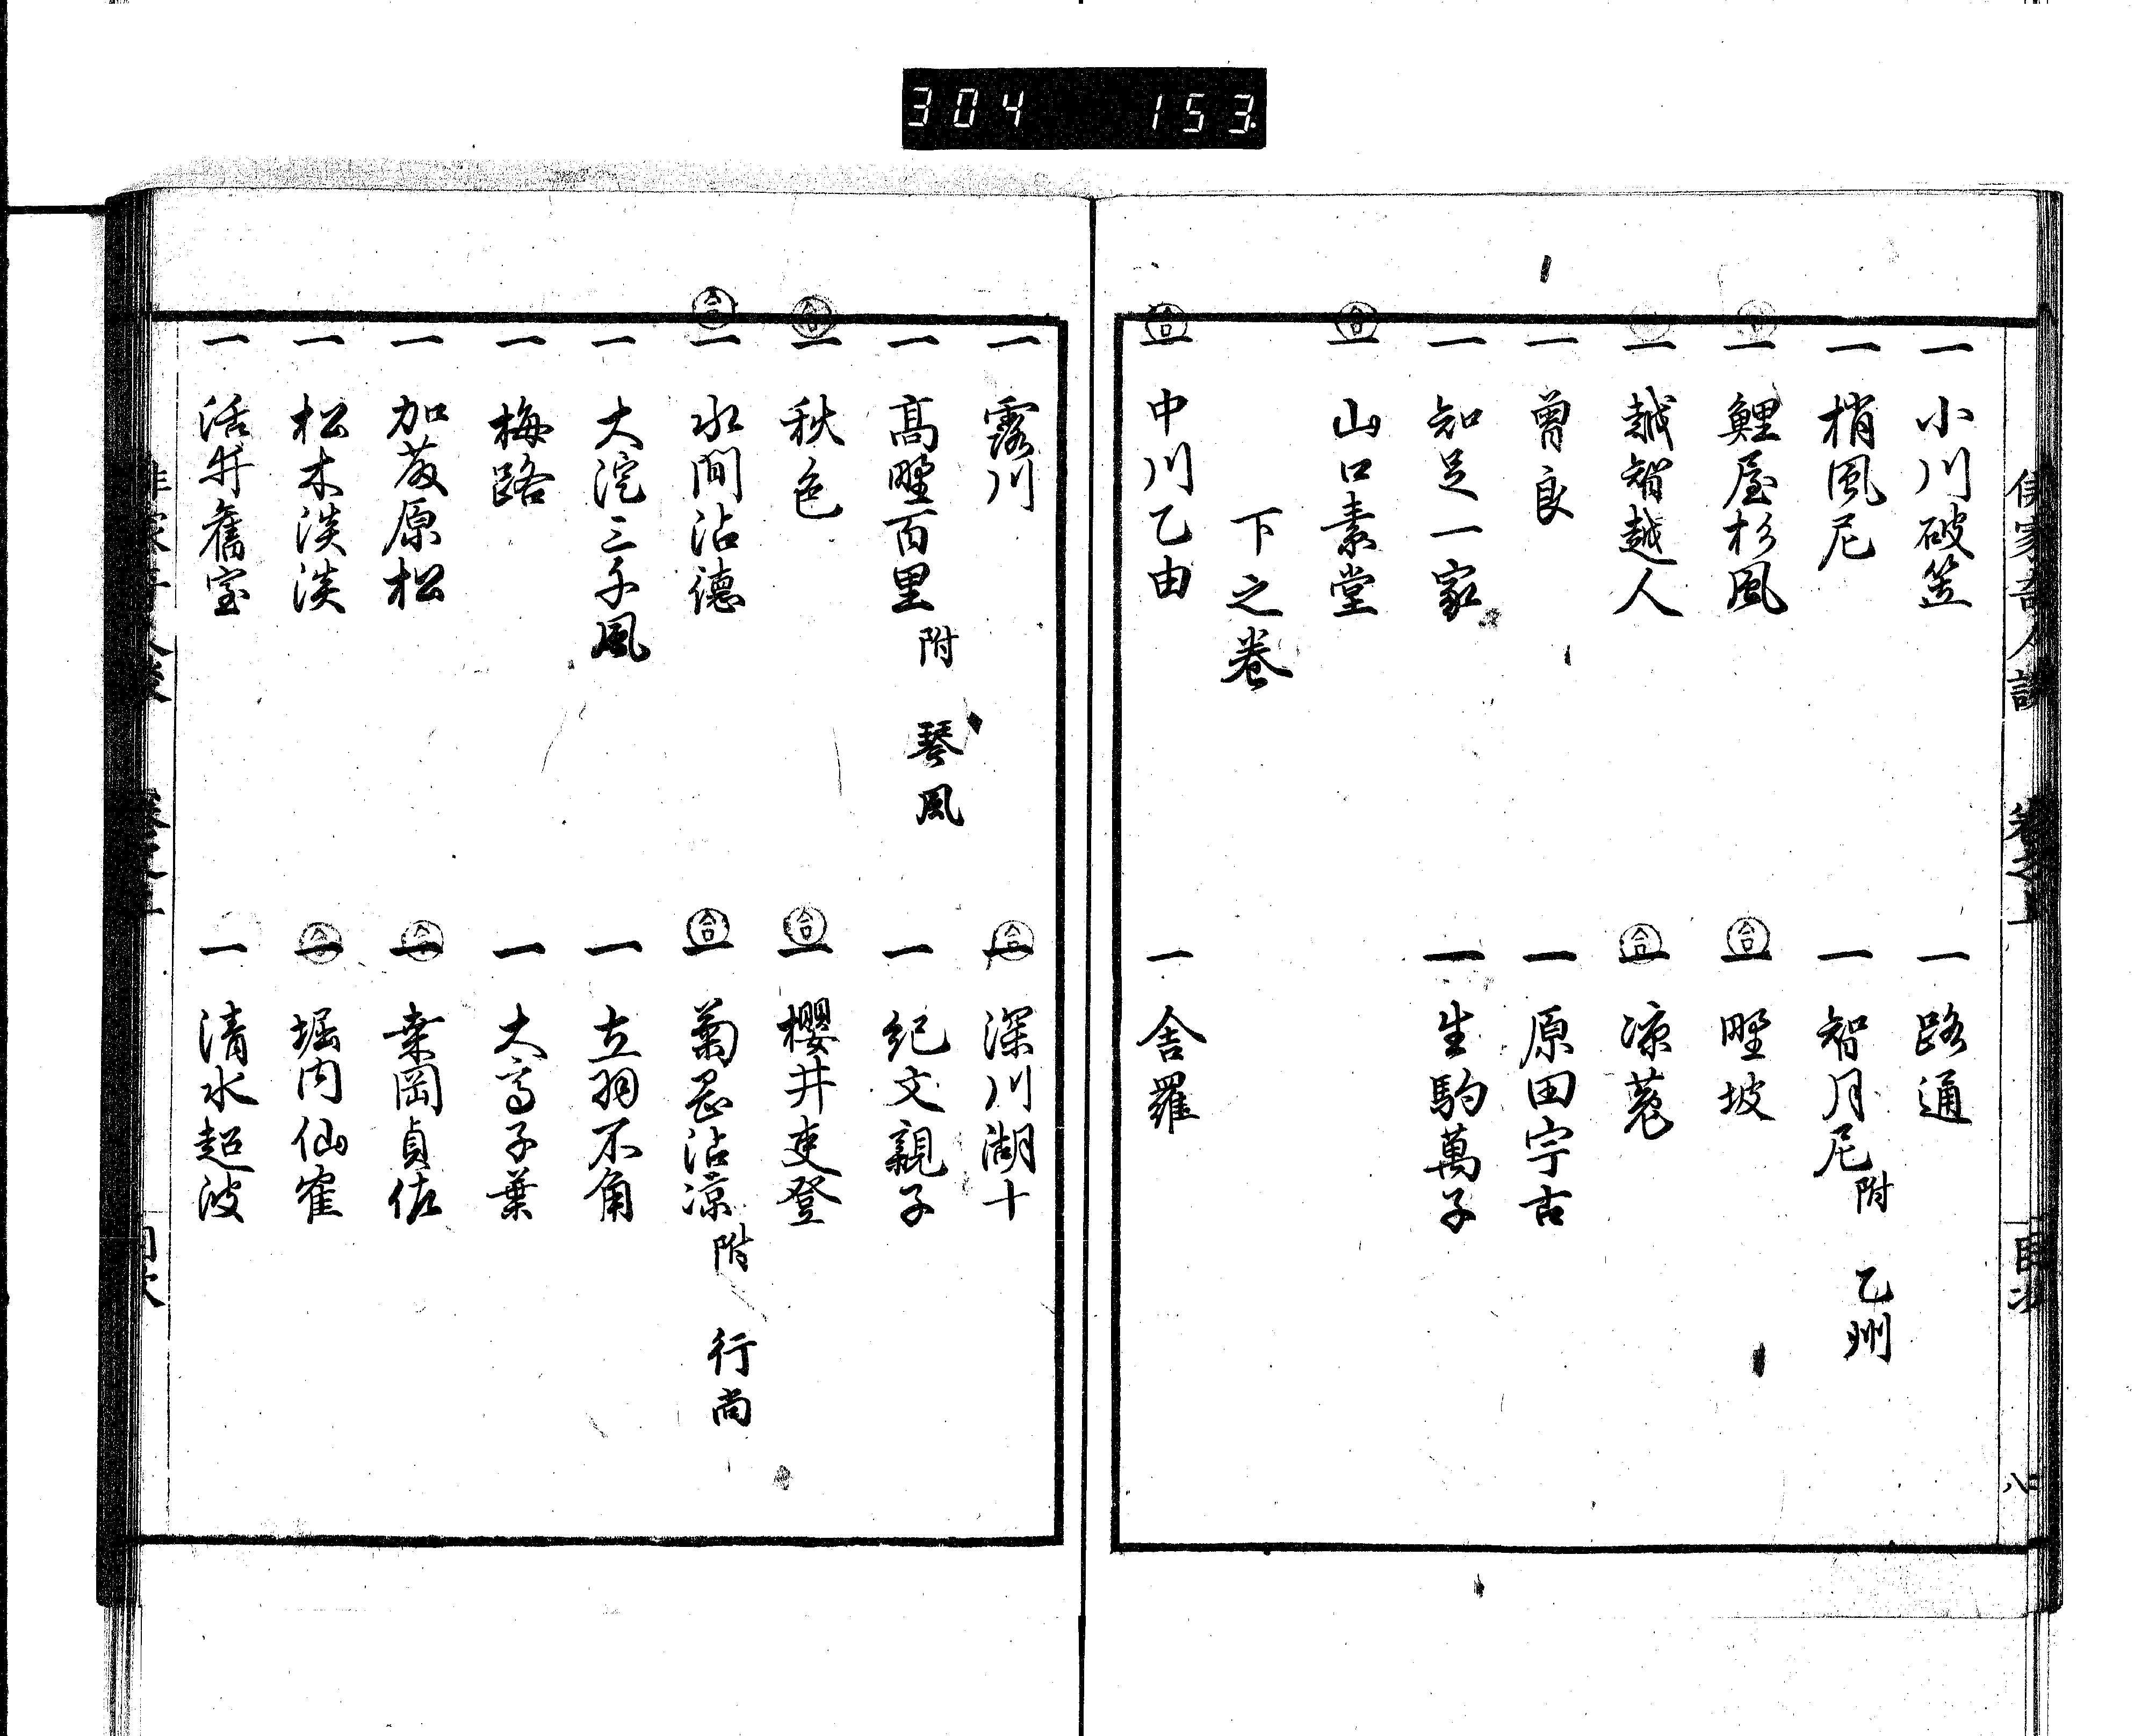 304 153
一 小川破笠
一 路通
一 梢風尼
一 智月尼 附 乙州
一 鯉屋杉風
一 野坡
一 越智越人
一 凉菟
一 曾良
一 原田宇古
一 知足一家
一 生駒萬子
一 山口素堂
下之巻
一 中川乙由
一 舎羅
一 露川
一 深川湖十
一 高野百里 附 琴風
一 紀文親子
一 秋色
一 櫻井吏登
一 水間沾德
一 菊岡沾凉 附 行尚
一 大淀三千風
一 立羽不角
一 梅路
一 大高子葉
一 加茂原松
一 桒岡貞佐
一 松木淡淡
一 堀内仙隺
一 活井舊室
一 清水超波